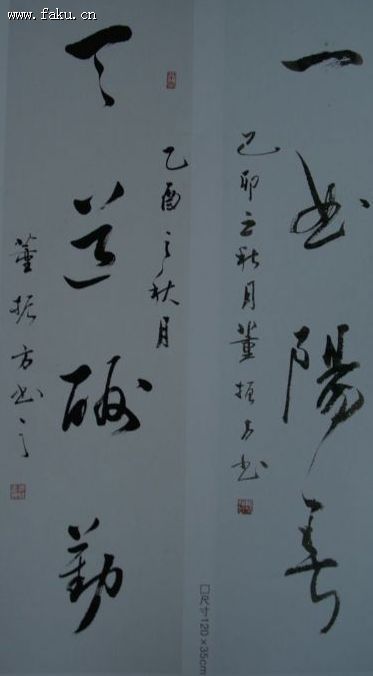 www.faku.cn
一曲陽春
己卯之秋月董振方书
天道酬勤
乙酉之秋月
董振方书之
□尺寸120×35cm